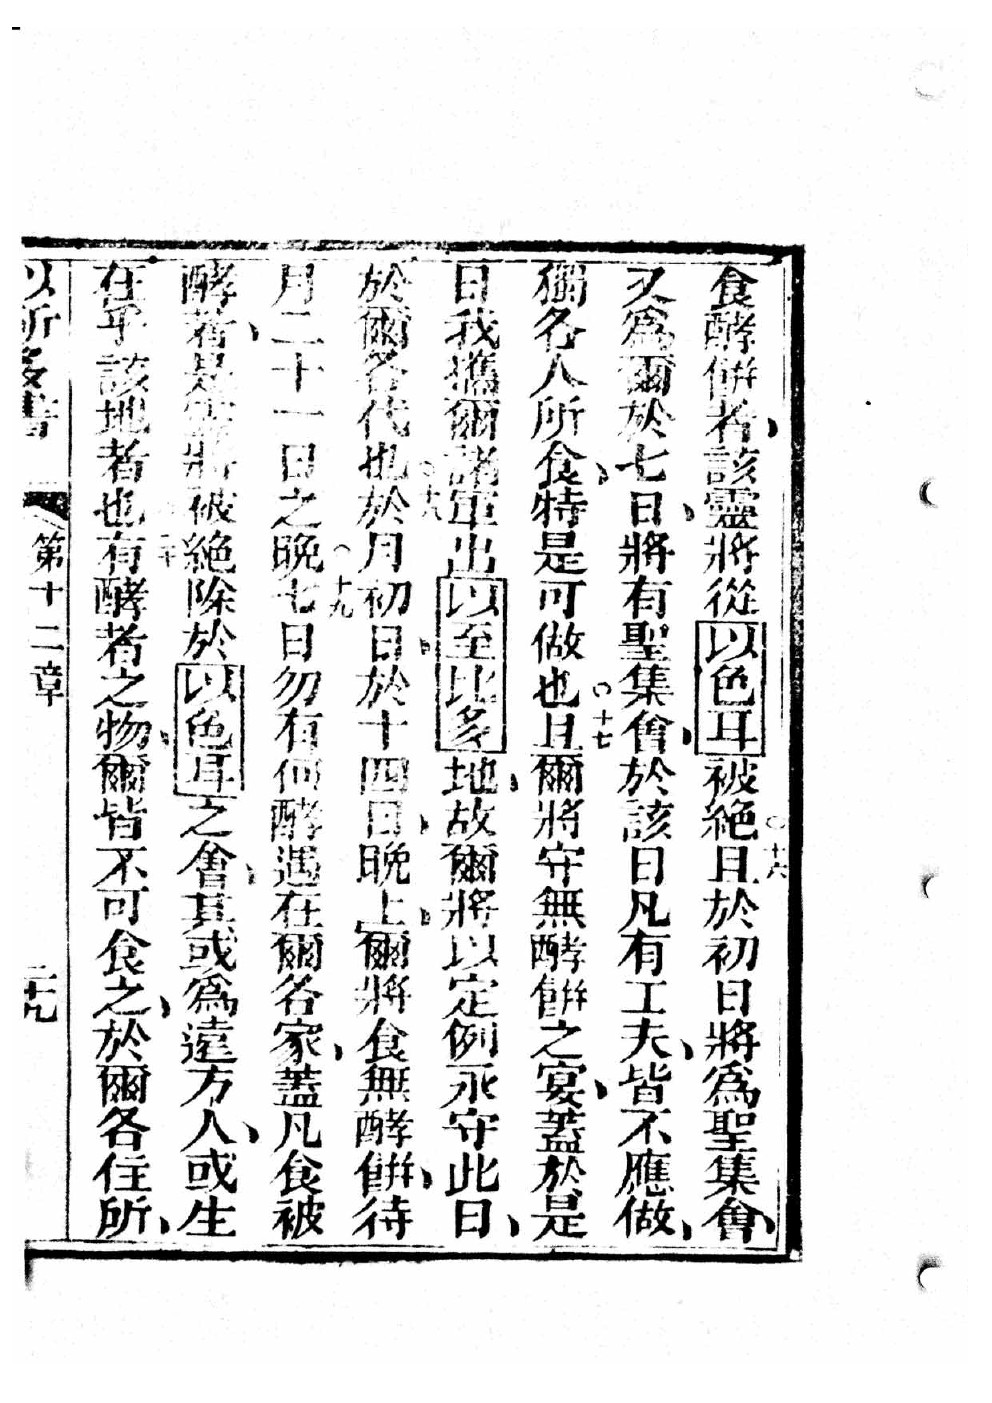 食酵餅者、該靈將從以色耳被絕○十六且於初日將爲聖集會、
又爲爾於七日、將有聖集會、於該日凡有工夫、皆不應做、
獨各人所食、特是可做也○十七且爾將守無酵餅之宴、蓋於是
日我攜爾諸軍出以至比多地、故爾將以定例永守此日、
於爾各代也○十八於月初日、於十四日、晚上、爾將食無酵餅、待
月二十一日之晚○十九七日勿有何酵遇在爾各家、蓋凡食被
酵者、是靈將被絕除於以色耳之會、其或爲遠方人、或生
在于該地者也○二十有酵者之物、爾皆不可食之、於爾各住所、
以所多書 第十二章 二十九